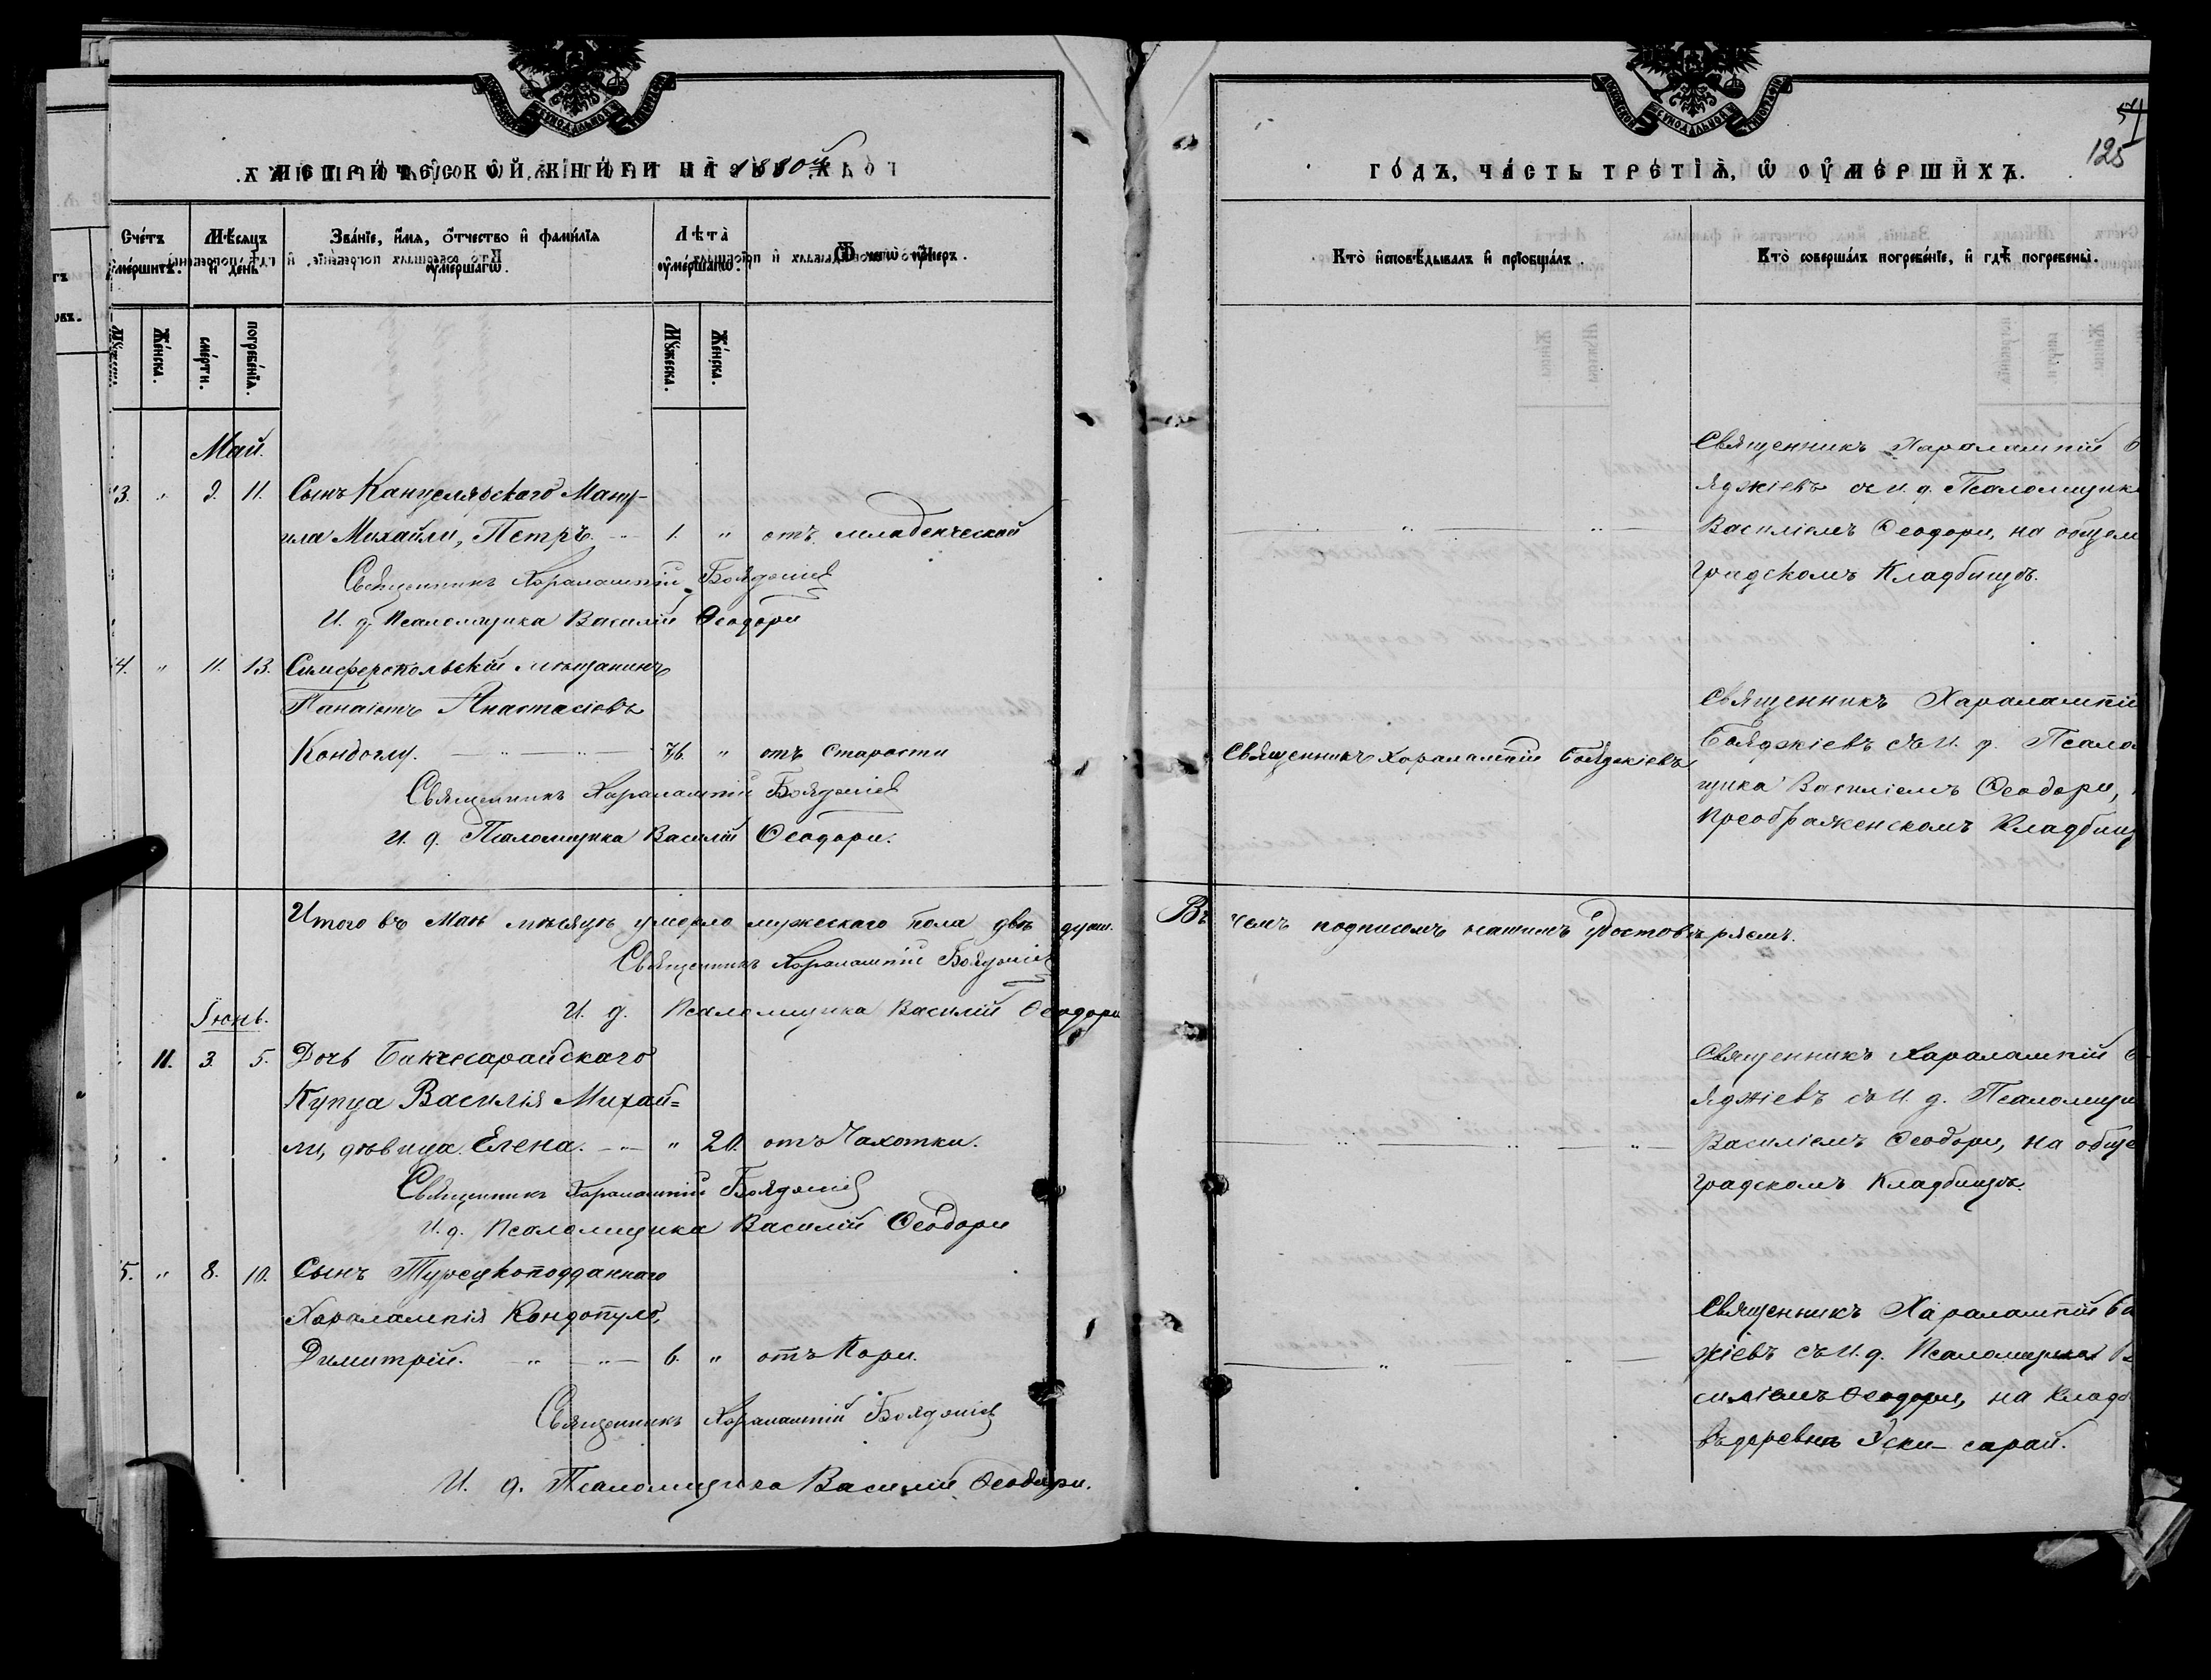 МЕТРИЧЕСКОЙ КНИГИ НА 1880й
Счетъ умершихъ.
Мѣсяцъ и день
Званіе, имя, отчество и фамилія умершаго.
Лѣта умершаго.
Отъ чего умеръ.
Мужеска.
Женска.
смерти.
погребенія.
Мужеска.
Женска.
Май.
3. " 9. 11. Сынъ КанцелярскагоМану-
ила Михайли, Петръ. 1. " отъ младенческой
Священникъ Харалампій Бояджіев
И. д. Псаломщика Василій Ѳеодори
4. " 11. 13. Симферопольскій мѣщанинъ
Панаіотъ Анастасіевъ
Кондоглу. 76. " отъ Старости
Священникъ Харалампій Бояджіев
И. д. Псаломщика Василій Ѳеодори.
Итого въ Маѣ мѣсяцѣ умерло мужескаго пола двѣ душ.
Священникъ Харалампій Бояджіев
И. д. Псаломщика Василій Ѳеодори
Іюнь.
11. 3. 5. Дочь Бахчесарайскаго
Купца Василія Михай=
ли, дѣвица Елена. " 20. отъ Чахотки.
Священникъ Харалампій Бояджіев
И. д. Псаломщика Василій Ѳеодори
5. " 8. 10. Сынъ Турецкоподданнаго
Харалампія Кондопуло,
Димитрій. 6. " отъ Кори.
Священникъ Харалампій Бояджіев
И. д. Псаломщика Василій Ѳеодори.
ГОДЪ, ЧАСТЬ ТРЕТІЯ, Ѡ ОУМЕРШИХЪ.
125
Кто исповѣдывалъ и пріобщалъ.
Кто совершалъ погребеніе, и гдѣ погребены.
Священникъ Харалампій Б
яджіевъ съ И. д. Псаломщик
Василіемъ Ѳеодори, на общем
Градскомъ Кладбищѣ.
Священникъ Харалампій Бояджіевъ
Священникъ Харалампій
Бояджіевъ съ И. д. Псалом
щика Василіемъ Ѳеодори,
Преображенскомъ Кладбищ
Въ чемъ подписемъ нашимъ удостовѣряемъ.
Священникъ Харалампій Б
яджіевъ съ И. д. Псаломщи
Василіемъ Ѳеодори, на обще
Градскомъ Кладбищѣ.
Священникъ Харалампій Бо
жіевъ съ И. д. Псаломщика Ва
силіемъ Ѳеодори, на кладб
въ деревнѣ Эски-сарай.